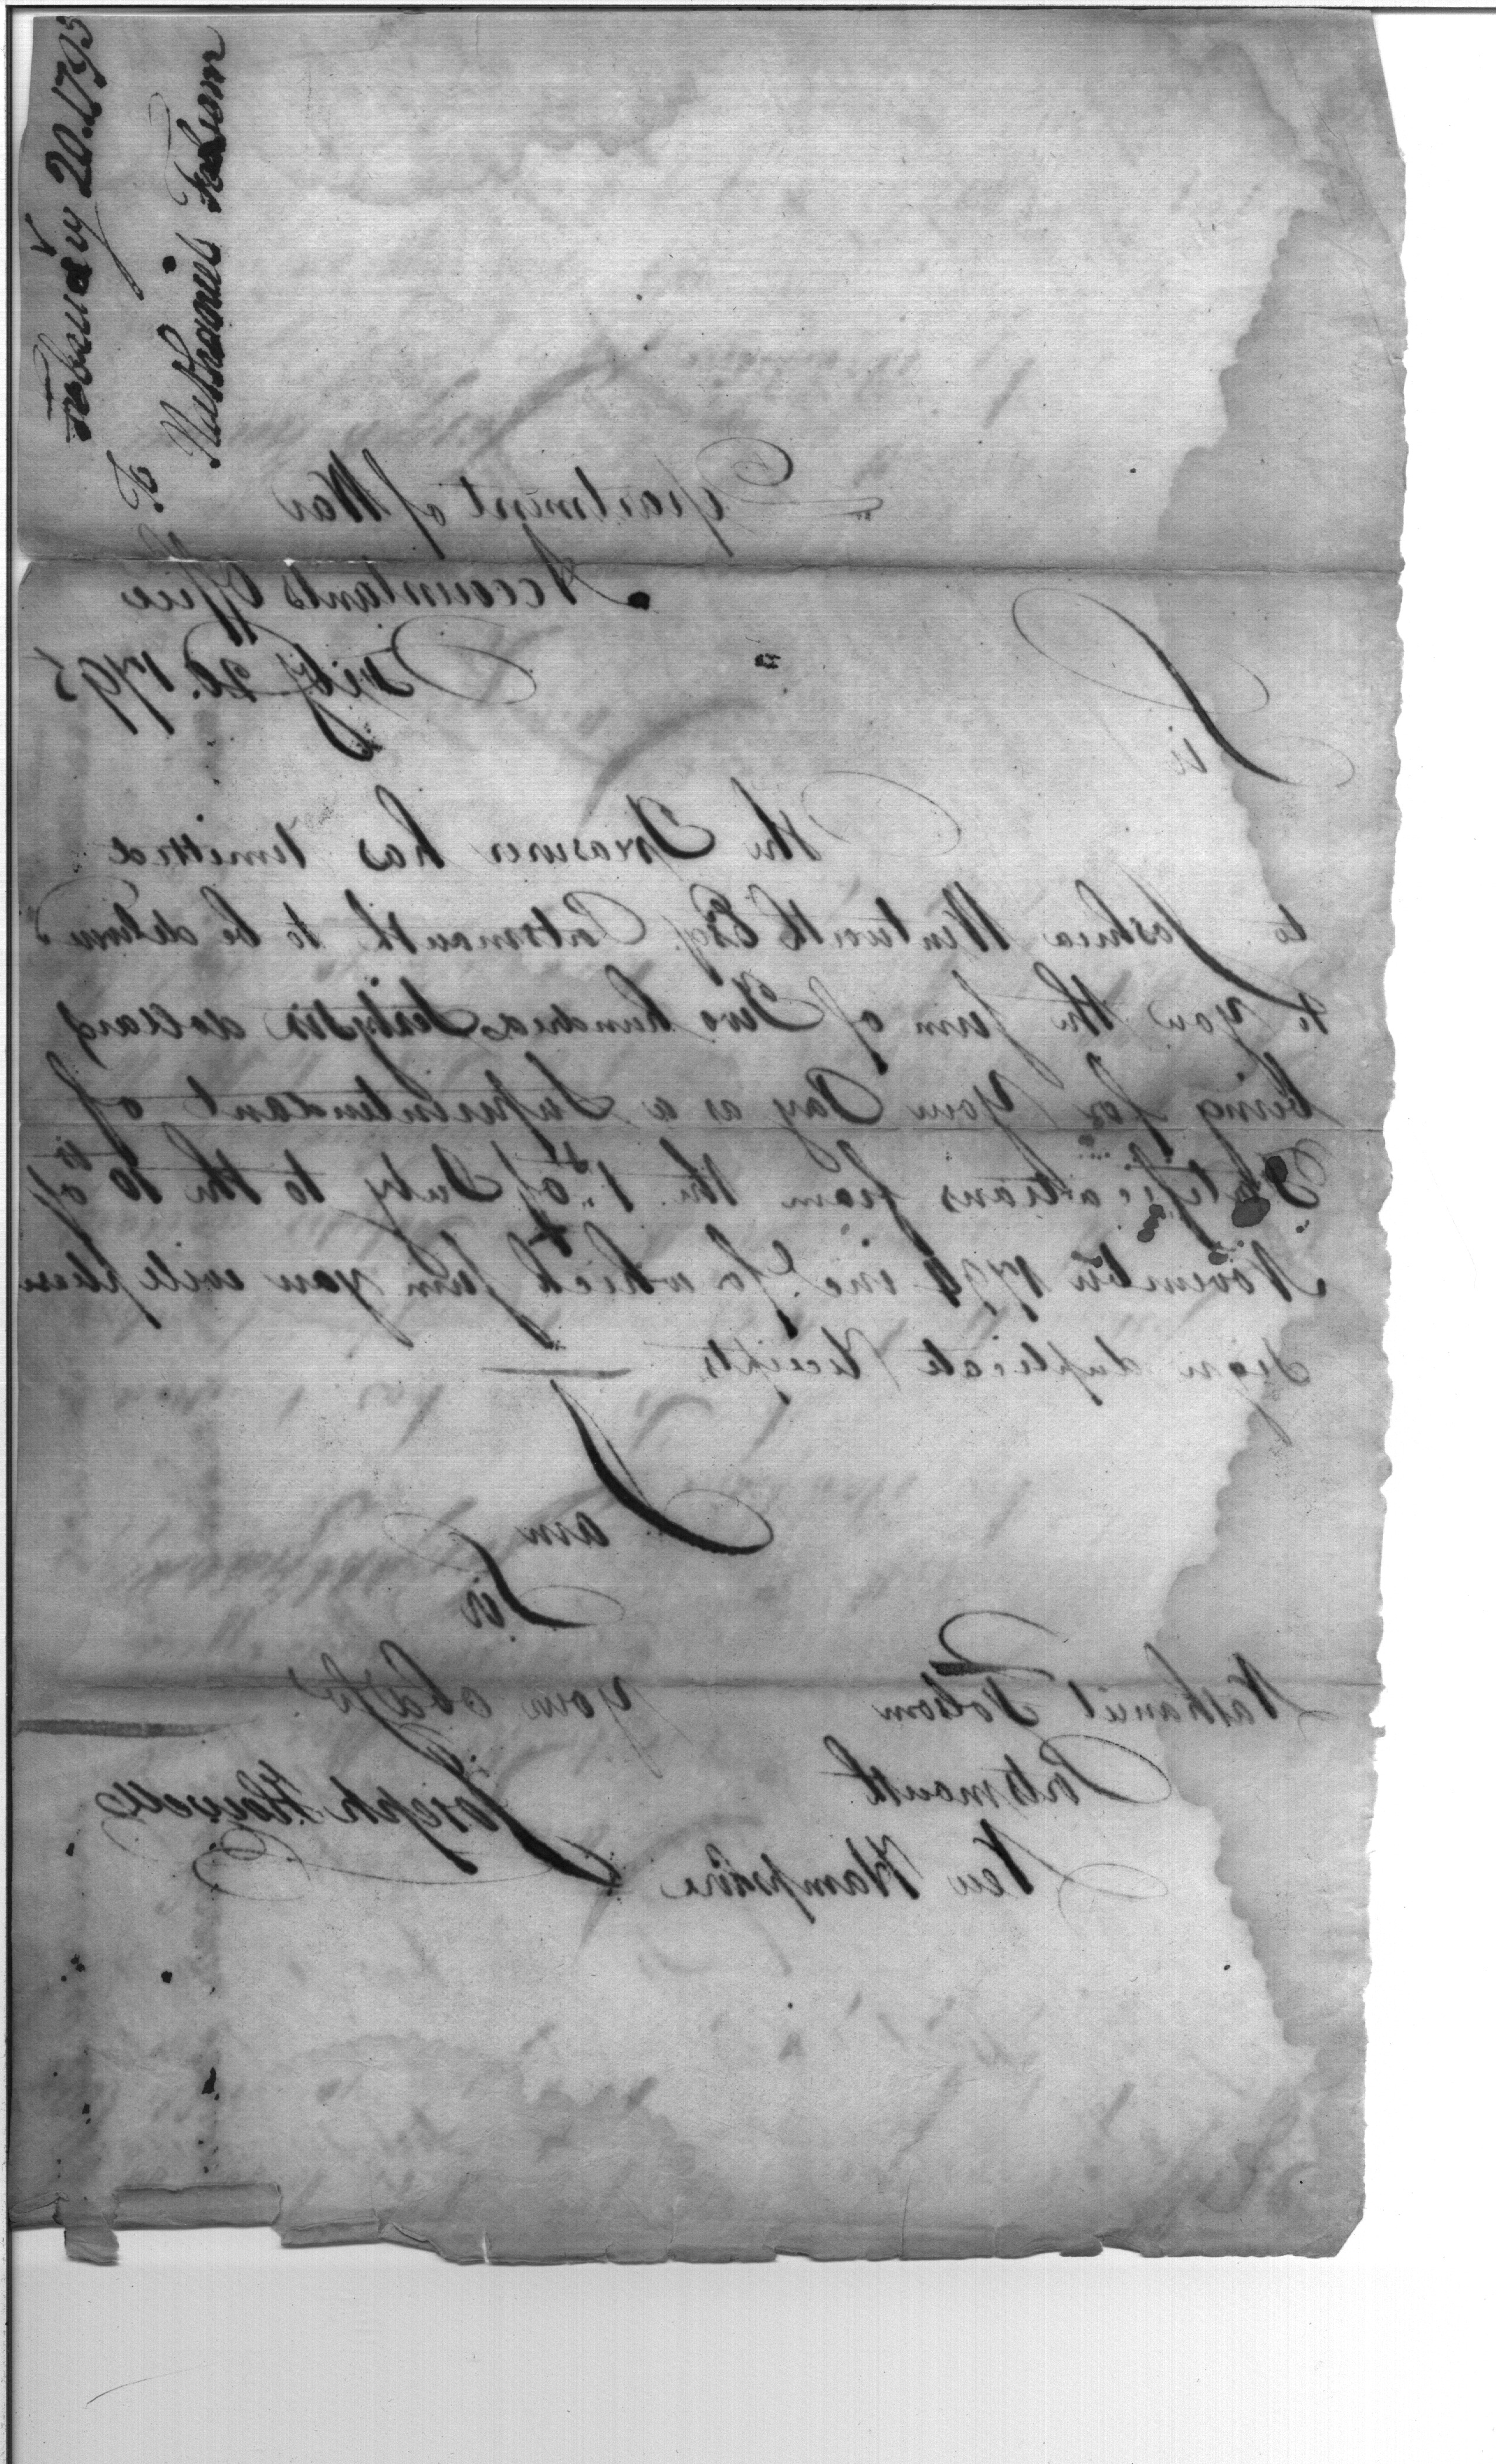 February 20. 1795
To
Nathaniel Folsom
Department of War
Accountants Office
20. 1795
Sir
The Treasurer has remitted
to Joshua Wentworth Esqr. Portsmouth to be deliverd
to you the sum of Two hundred Sixty six dollars
being for your Pay as a Superintendant of
Fortifications from the 1st of July to the 10th of
November 1794 incl. for which sum you will please
sign duplicate Receipts
I am
Sir
your obd Sr
Joseph Howell
Nathaniel Folsom
Portsmouth
New Hampshire